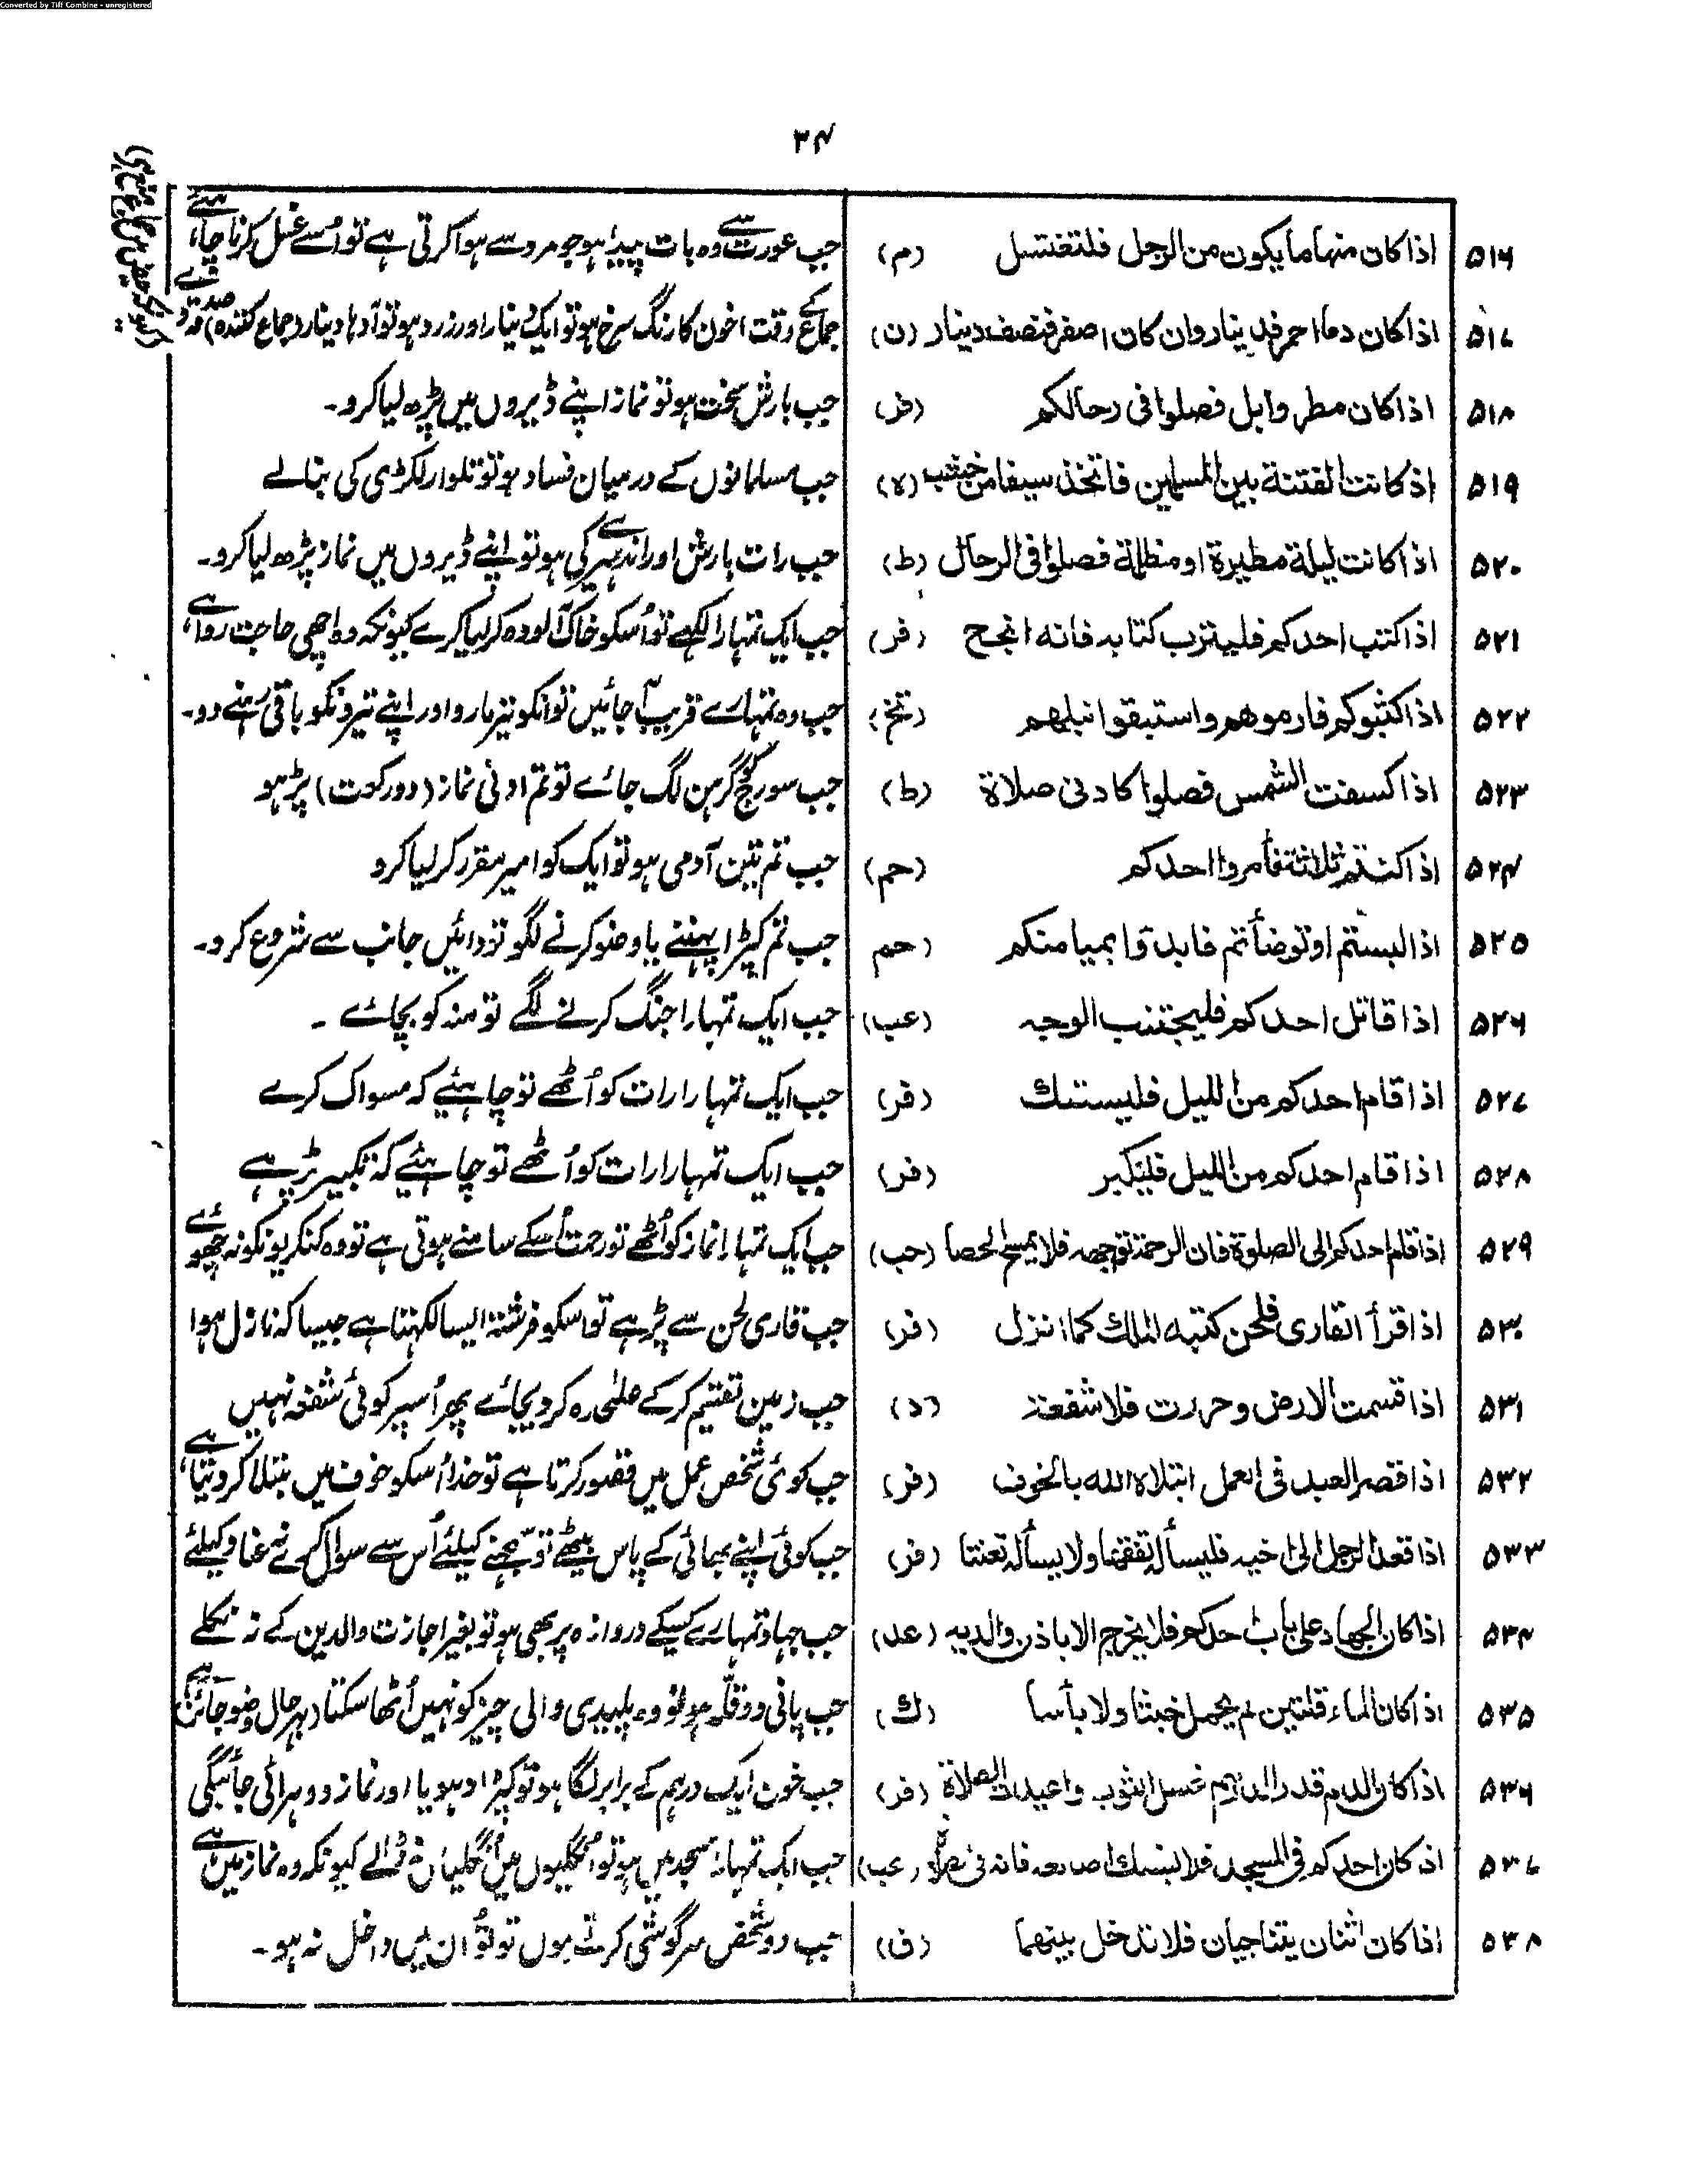 Converted by Tiff Combine - unregistered
۳۴
۵۱۶ اذا كان منها ما يكون من الرجل فلتغتسل (م) جب عورت سے وہ بات پیدا ہو جو مرد سے ہوا کرتی ہے تو اُسے غسل کرنا چاہئے
۵۱۷ اذا كان دما احمر فدينار وان كان اصفر فنصف دينار (ن) جماع کے وقت اخون کا رنگ سرخ ہو تو ایک دینار اور زرد ہو تو آدہا دینار (جماع کنندہ) صدقہ دے
۵۱۸ اذا كان مطر وابل فصلوا فى رحالكم (طر) جب بارش سخت ہو تو نماز اپنے ڈیروں میں پڑھ لیا کرو۔
۵۱۹ اذا كانت الفتنة بين المسلمين فاتخذ سيفا من خشب (ہ) جب مسلمانوں کے درمیان فساد ہو تو تلوار لکڑی کی بنالے
۵۲۰ اذا كانت ليلة مطيرة او مظلمة فصلوا فى الرحال (ط) جب رات بارش اور اندہیرے کی ہو تو اپنے ڈیروں میں نماز پڑھ لیا کرو۔
۵۲۱ اذا كتب احدكم فليترب كتابه فانه انجح (فر) جب ایک تمہارا لکھے تو اُسکو خاک آلودہ کر لیا کرے کیونکہ وہ اچھی حاجت روا ہے
۵۲۲ اذا كثبوكم فارموهم واستبقوا نبلهم (تخ) جب وہ تمہارے قریب آجائیں تو انکو تیر مارو اور اپنے تیرونکو باقی رہنے دو۔
۵۲۳ اذا كسفت الشمس فصلوا كادنى صلاة (ط) جب سورج کو گرہن لگ جائے تو تم ادنی نماز (دو رکوت) پڑہو
۵۲۴ اذا كنتم ثلاثة فأمروا احدكم (حم) جب تم تین آدمی ہو تو ایک کو امیر مقرر کر لیا کرو
۵۲۵ اذا لبستم او توضأتم فابدؤا بميامنكم (حم جب تم کپڑا پہننے یا وضو کرنے لگو تو دائیں جانب سے شروع کرو۔
۵۲۶ اذا قاتل احدكم فليجتنب الوجه (عب) جب ایک تمہارا جنگ کرنے لگے تو منہ کو بچائے ۔
۵۲۷ اذا قام احدكم من الليل فليستنك (فر) جب ایک تمہارا رات کو اُٹھے تو چاہئیے کہ مسواک کرے
۵۲۸ اذا قام احدكم من الليل فليكبر (فر) جب ایک تمہارا رات کو اُٹھے تو چاہئیے کہ تکبیر پڑہے
۵۲۹ اذا قام احدكم الى الصلوة فان الرحمة تواجهه فلا يمسح الحصا (حب) جب ایک تمہارا نماز کو اُٹھے تو رحمت اُسکے سامنے ہوتی ہے تو وہ کنکریونکو نہ چھوئے
۵۳۰ اذا قرأ القارى فلحن كتبه الملك كما انزل (فر) جب قاری لحن سے پڑہے تو اسکو فرشتہ ایسا لکہتا ہے جیسا کہ نازل ہوا
۵۳۱ اذا قسمت الارض وحررت فلا شفعة (د) جب زمین تقسیم کرکے علیٰحدہ کر دیجائے پھر اُسپر کوئی شفعہ نہیں
۵۳۲ اذا قصر العبد فى العمل ابتلاه الله بالخوف (فر) جب کوئی شخص عمل میں قصور کرتا ہے تو خدا اُسکو خوف میں مبتلا کر دیتا ہے
۵۳۳ اذا قعد الرجل الى اخيه فليسأله تفقها ولا يسأله تعنتا (فر) جب کوئی اپنے بھائی کے پاس بیٹھے تو سمجہنے کیلئے اُس سے سوال کرے نہ عناد کیلئے
۵۳۴ اذا كان الجهاد على باب احدكم فلا يخرج الا باذن والديه (عد) جب جہاد تمہارے کسیکے دروازہ پر بھی ہو تو بغیر اجازت والدین کے نہ نکلے
۵۳۵ اذا كان الماء قلتين لم يحمل خبثا ولا بأسا (ك) جب پانی دو قلّہ ہو تو وہ پلیدی والی چیز کو نہیں اُٹھا سکتا (بہر حال وضو جائز ہے
۵۳۶ اذا كان الدم قدر الدرهم غسل الثوب واعيدت الصلاة (فر) جب خون ایک درہم کے برابر لگا ہو تو کپڑا دہویا اور نماز دوہرائی جائیگی
۵۳۷ اذ كان احدكم فى المسجد فلا يشبك اصابعه فانه فى (عب) جب ایک تمہارا مسجد میں ہو تو اُنگلیوں میں اُنگلیاں نہ ڈالے کیونکہ وہ نماز میں ہے
۵۳۸ اذا كان اثنان يتناجيان فلا تدخل بينهما (ف) جب دو شخص سرگوشی کرتے ہوں تو تُو ان میں داخل نہ ہو۔